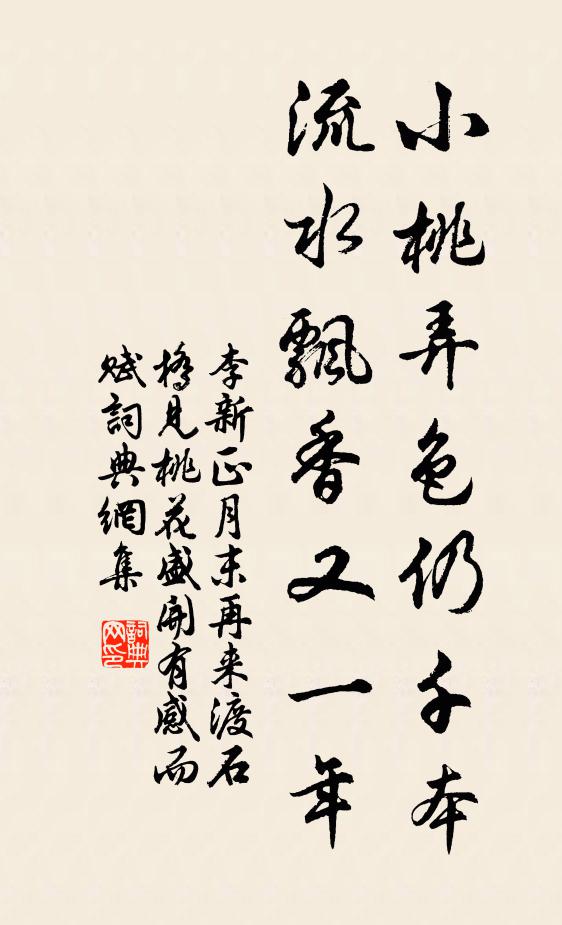 小桃弄色仍千本
流水飄香又一年
李新正月末再来渡石
橋見桃花盛開有感而
賦詞典網集
詞典
网印